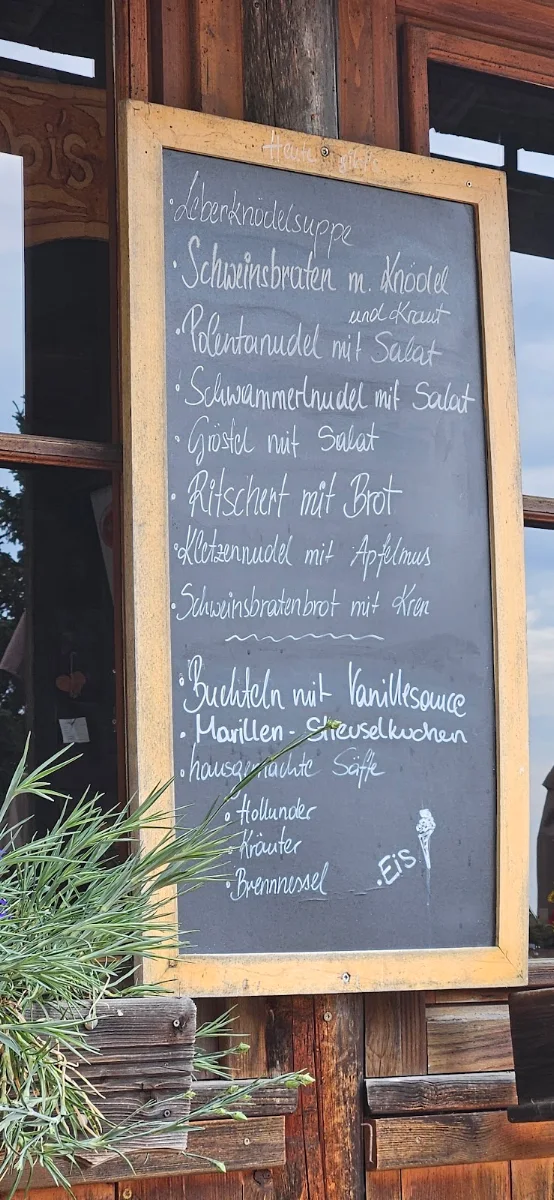 Heute gibt's
• Leberknödelsuppe
• Schweinsbraten m. Knödel
und Kraut
• Polentanudel mit Salat
• Schwammerlnudel mit Salat
• Gröstel mit Salat
• Ritschert mit Brot
• Kletzennudel mit Apfelmus
• Schweinsbratenbrot mit Kren
• Buchteln mit Vanillesauce
• Marillen - Streuselkuchen
• hausgemachte Säfte
• Hollunder
• Kräuter
• Brennnessel
• Eis